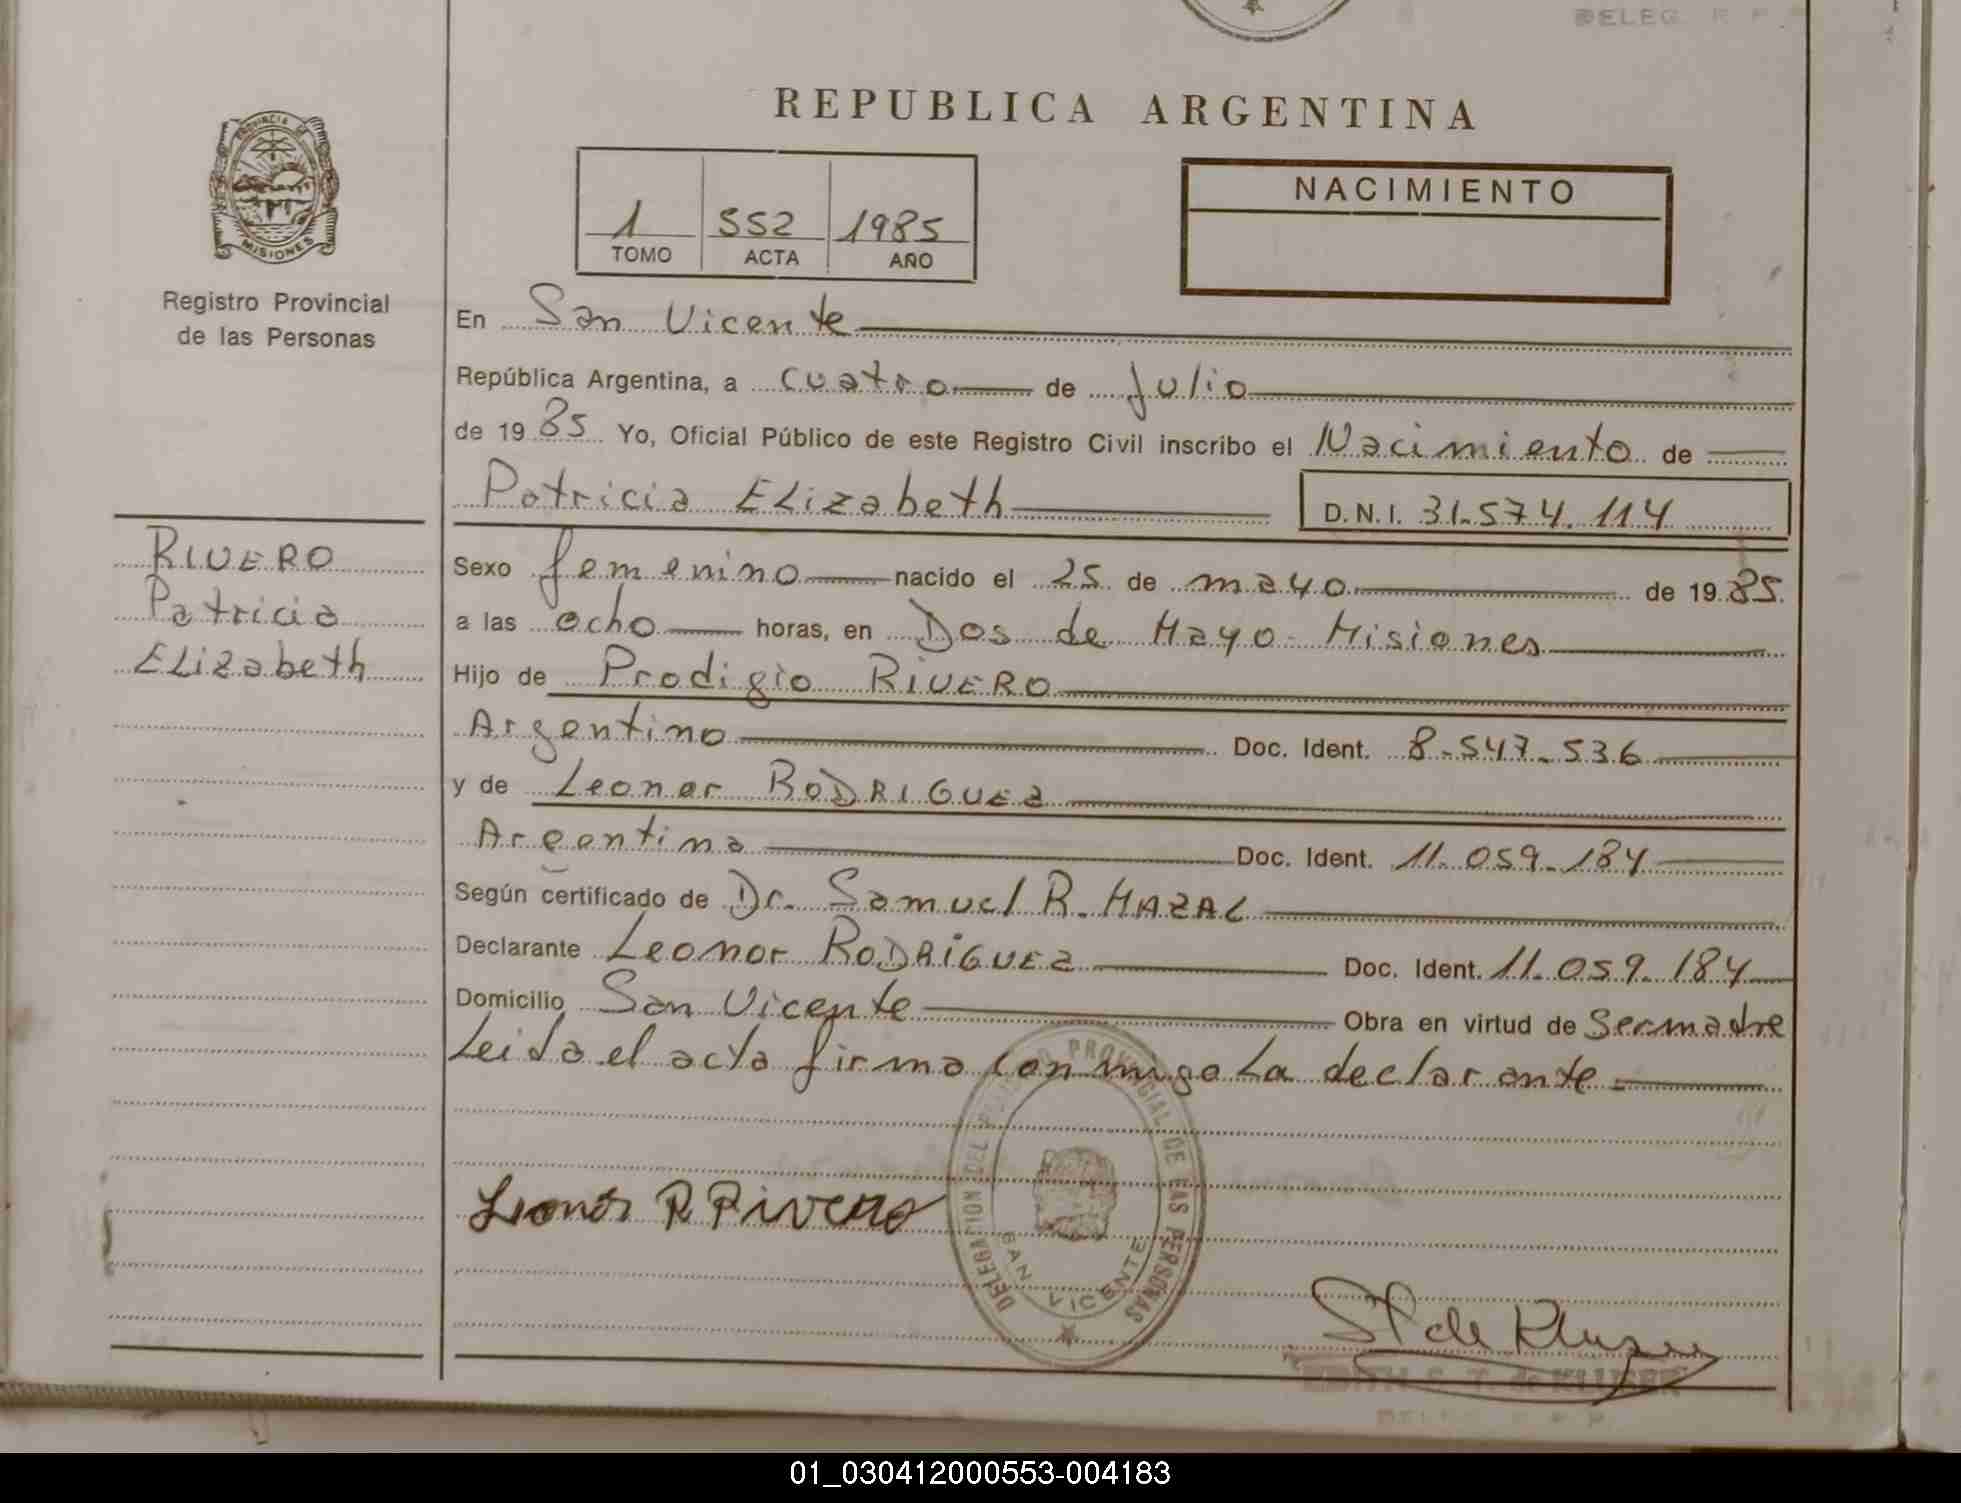 DELEG. R. P.
REPUBLICA ARGENTINA
PROVINCIA DE
MISIONES
Registro Provincial
de las Personas
1 552 1985
TOMO ACTA AÑO
NACIMIENTO
En San Vicente
República Argentina, a cuatro de Julio
de 19 85 Yo, Oficial Público de este Registro Civil inscribo el Nacimiento de
Patricia ELizabeth D.N.I. 31.574.114
RIVERO
Patricia
ELizabeth
Sexo femenino nacido el 25 de mayo de 19 85
a las ocho horas, en Dos de Mayo - Misiones
Hijo de Prodigio RIVERO
Argentino Doc. Ident. 8-547-536
y de Leonor RODRIGUEZ
Argentina Doc. Ident. 11.059-184
Según certificado de Dr. Samuel R. HAZAL
Declarante Leonor RODRIGUEZ Doc. Ident. 11.059.184
Domicilio San Vicente Obra en virtud de Ser madre
Leida el acta firma conmigo La declarante
Leonor R Rivero
DELEGACION DEL REGISTRO PROVINCIAL DE LAS PERSONAS
SAN VICENTE
ST de Kluser
EDITH S. T. de KLUSER
DELEG. R. P. P.
01_030412000553-004183